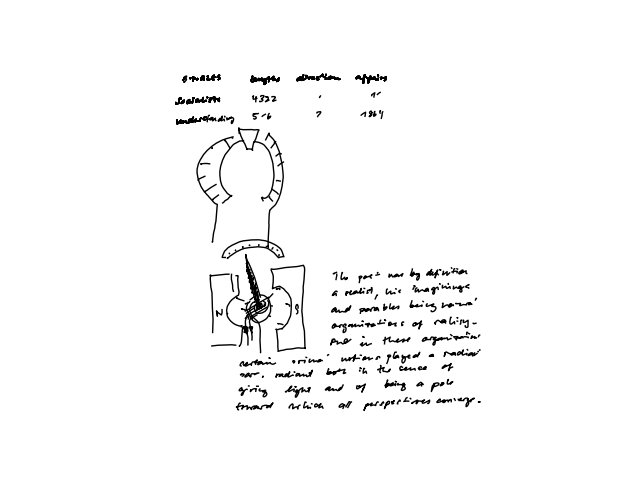 lengths direction affairs
socialists 4322
understanding 5-6 ? 1864
N
The poet was by definition
a realist, his imaginings
and parables being
organizations of reality.
And in these organizations
certain notions played a radiant
radiant both in the sense of
giving light and of being a pole
toward which all perspectives converge.